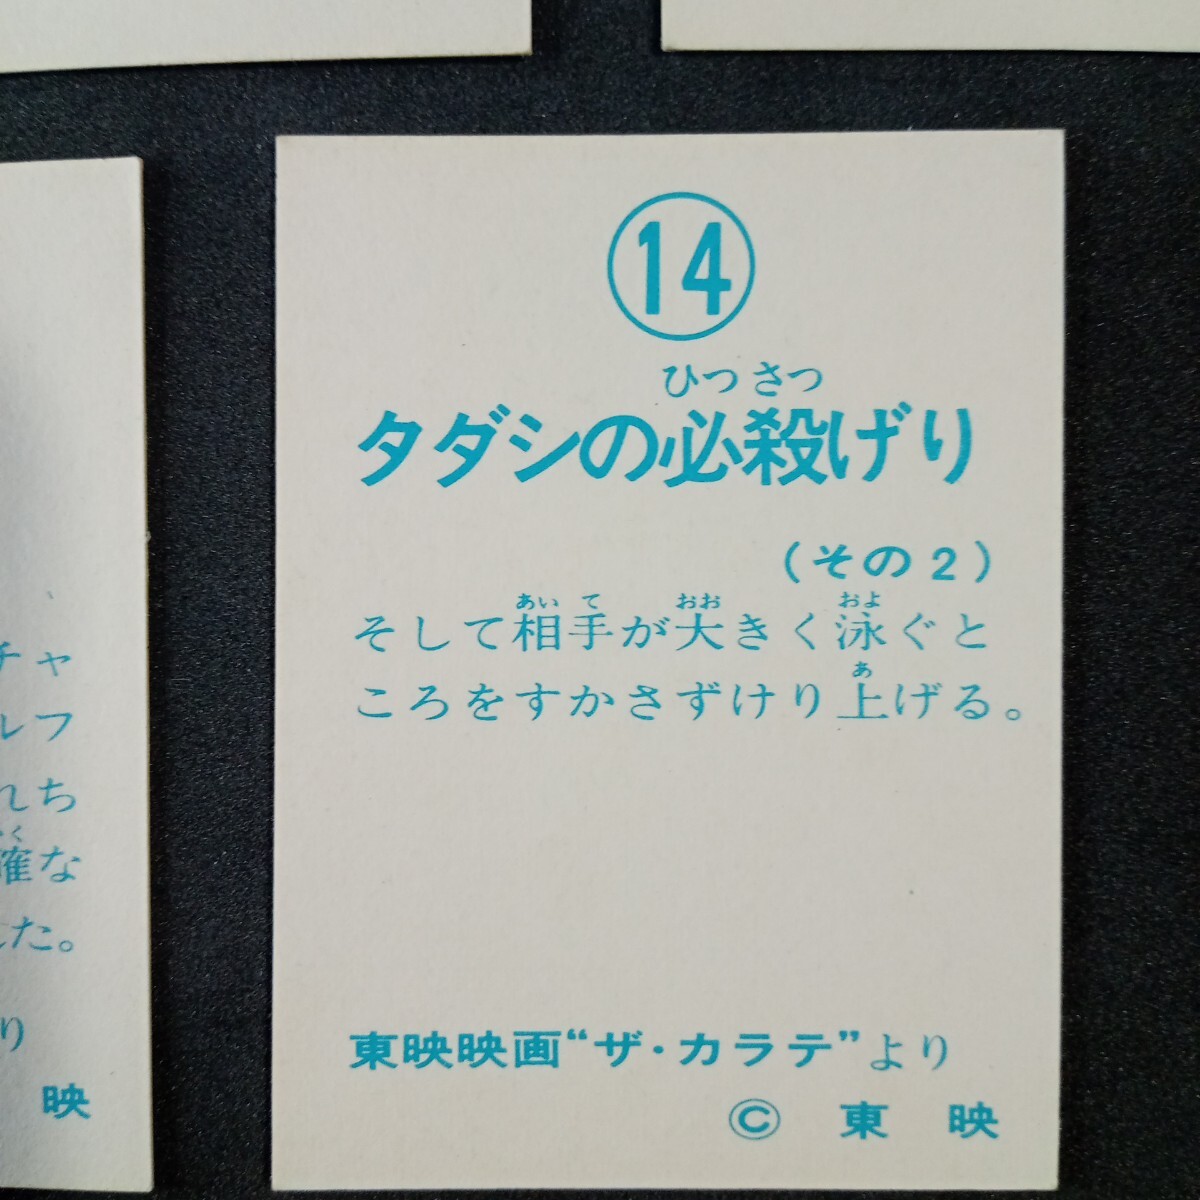 ⑭
ひっさつ
タダシの必殺げり
(その2)
あいて おお およ
そして相手が大きく泳ぐと
あ
ころをすかさずけり上げる。
東映映画“ザ・カラテ”より
© 東 映
チャ
ルフ
れち
く
確な
た。
り
映